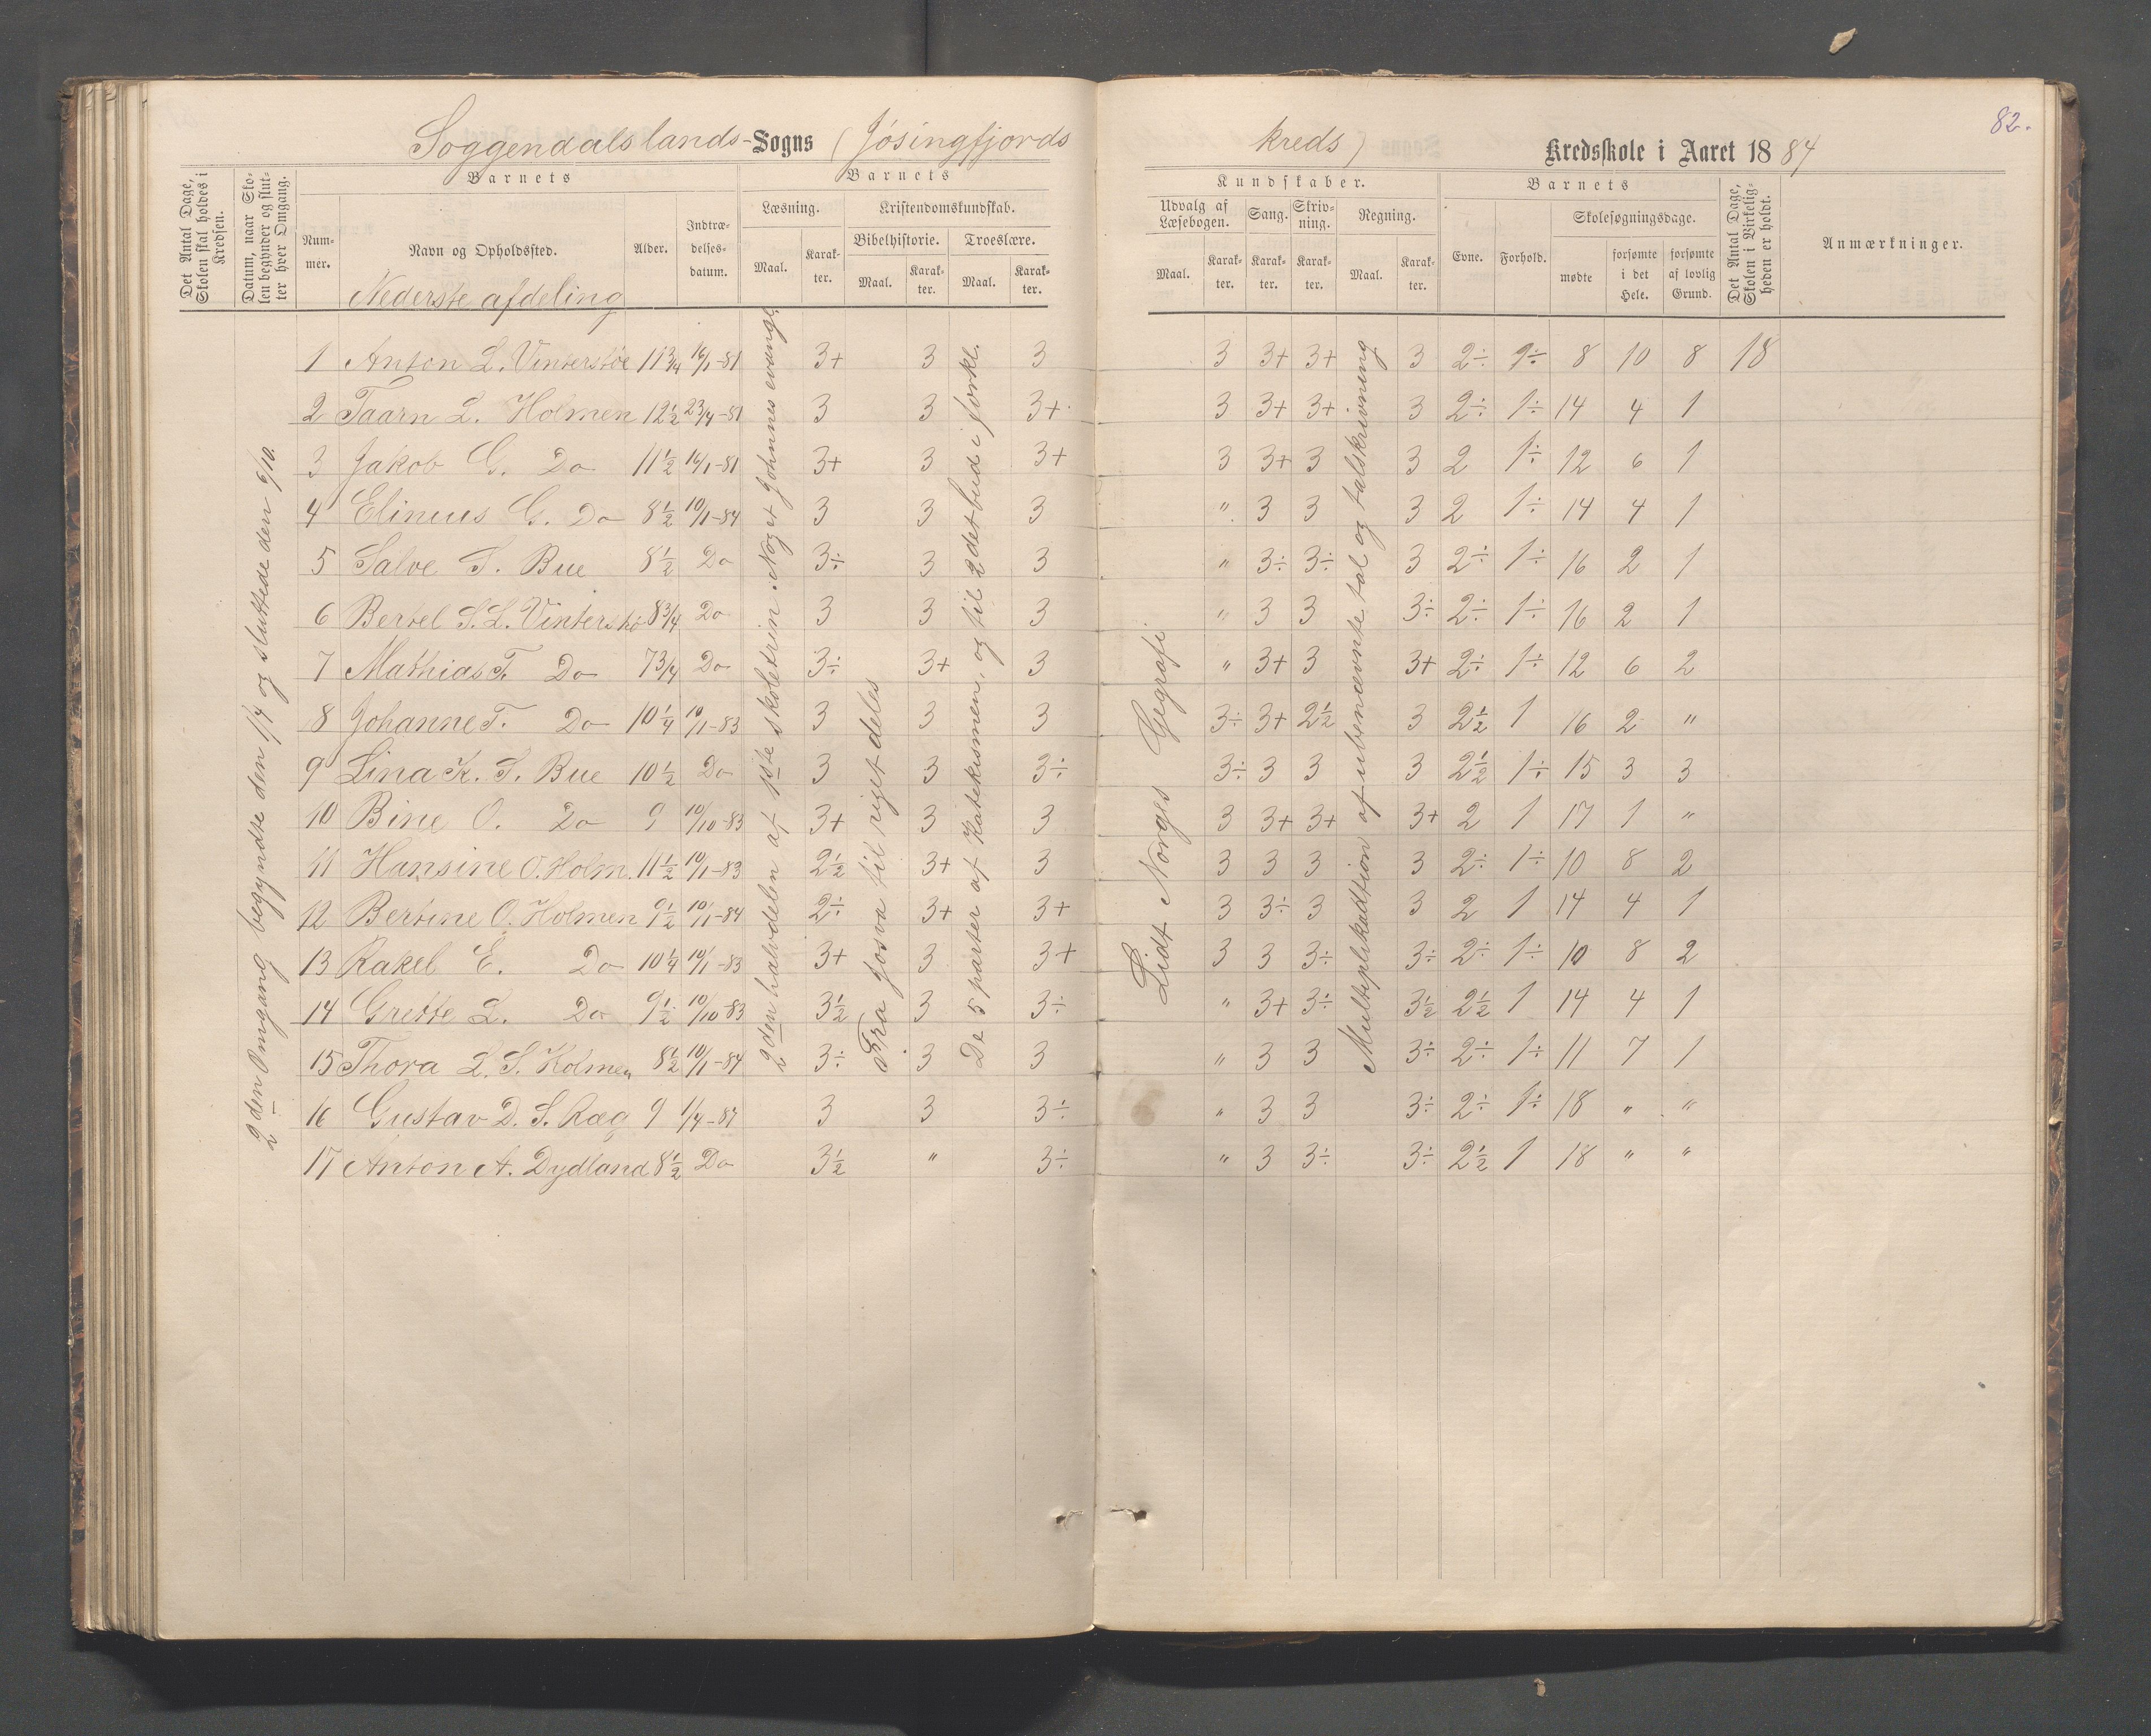 82.
Soggendals lands-Sogns (Jósingfjords kreds) Kredsskole i Aaret 1884
Det Antal Dage, Skolen skal holdes i Kredsen.
Datum, naar Skolen begynder og slutter hver Omgang.
Barnets
Nummer.
Navn og Opholdssted.
Alder.
Indtrædelsesdatum.
Barnets
Læsning.
Maal.
Karakter.
Kristendomskundskab.
Bibelhistorie.
Maal.
Karakter.
Troeslære.
Maal.
Karakter.
Kundskaber.
Udvalg af Læsebogen.
Maal.
Karakter.
Sang.
Karakter.
Skrivning.
Karakter.
Regning.
Maal.
Karakter.
Barnets
Evne.
Forhold.
Skolesøgningsdage.
mødte
forsømte i det Hele.
forsømte af lovlig Grund.
Det Antal Dage, Skolen i Virkeligheden er holdt.
Anmærkninger.
Nederste afdeling
2den Omgang begyndte den 1/4 og sluttede den 9/10.
2den halvdelen af 1ste skoletrin. Noget Johannes evangl
Fra Josva til riget deles
De 5 parter af Katekismen, og til 2det bud i forkl.
Lidt Norges Gegrafi
Multiplikadtion af ubenævnte tal og talskrivning
1 Anton L. Vinterstöe 11 3/4 16/1-81 3+ 3 3 3 3+ 3+ 3 2÷ 1÷ 8 10 8 18
2 Taarn L. Holmen 12 1/2 23/4-81 3 3 3+ 3 3+ 3+ 3 2÷ 1÷ 14 4 1
3 Jakob G. Do 11 1/2 16/1-81 3+ 3 3+ 3 3+ 3 3 2 1÷ 12 6 1
4 Elinius G. Do 8 1/2 10/1-84 3 3 3 " 3 3 3 2 1÷ 14 4 1
5 Salve S. Bue 8 1/2 Do 3÷ 3 3 " 3÷ 3÷ 3 2÷ 1÷ 16 2 1
6 Bertel S. L. Vinterstö 8 3/4 Do 3 3 3 " 3 3 3÷ 2÷ 1÷ 16 2 1
7 Mathias T. Do 7 3/4 Do 3÷ 3+ 3 " 3+ 3 3+ 2÷ 1÷ 12 6 2
8 Johanne T. Do 10 1/4 10/1-83 3 3 3 3÷ 3+ 2 1/2 3 2 1/2 1 16 2 "
9 Lina K. S. Bue 10 1/2 Do 3 3 3÷ 3÷ 3 3 3 2 1/2 1÷ 15 3 3
10 Bine O. Do 9 10/10-83 3+ 3 3 3 3+ 3+ 3+ 2 1 17 1 "
11 Hansine O. Holm. 11 1/2 10/1-83 2 1/2 3+ 3 3 3 3 3 2÷ 1÷ 10 8 2
12 Bertine O. Holmen 9 1/2 10/1-84 2÷ 3+ 3+ 3 3÷ 3 3 2 1 14 4 1
13 Rakel E. Do 10 1/4 10/1-83 3+ 3 3+ 3 3 3÷ 3÷ 2÷ 1÷ 10 8 2
14 Grette L. Do 9 1/2 10/10-83 3 1/2 3 3÷ " 3+ 3÷ 3 1/2 2 1/2 1 14 4 1
15 Thora L. S. Holmen 8 1/2 10/1-84 3÷ 3 3 " 3 3 3÷ 2÷ 1÷ 11 7 1
16 Gustav D. S. Ræg 9 1/4-84 3 3 3÷ " 3 3 3÷ 2÷ 1÷ 18 " "
17 Anton A. Dydland 8 1/2 Do 3 1/2 " 3÷ " 3 3÷ 3÷ 2 1/2 1 18 " "